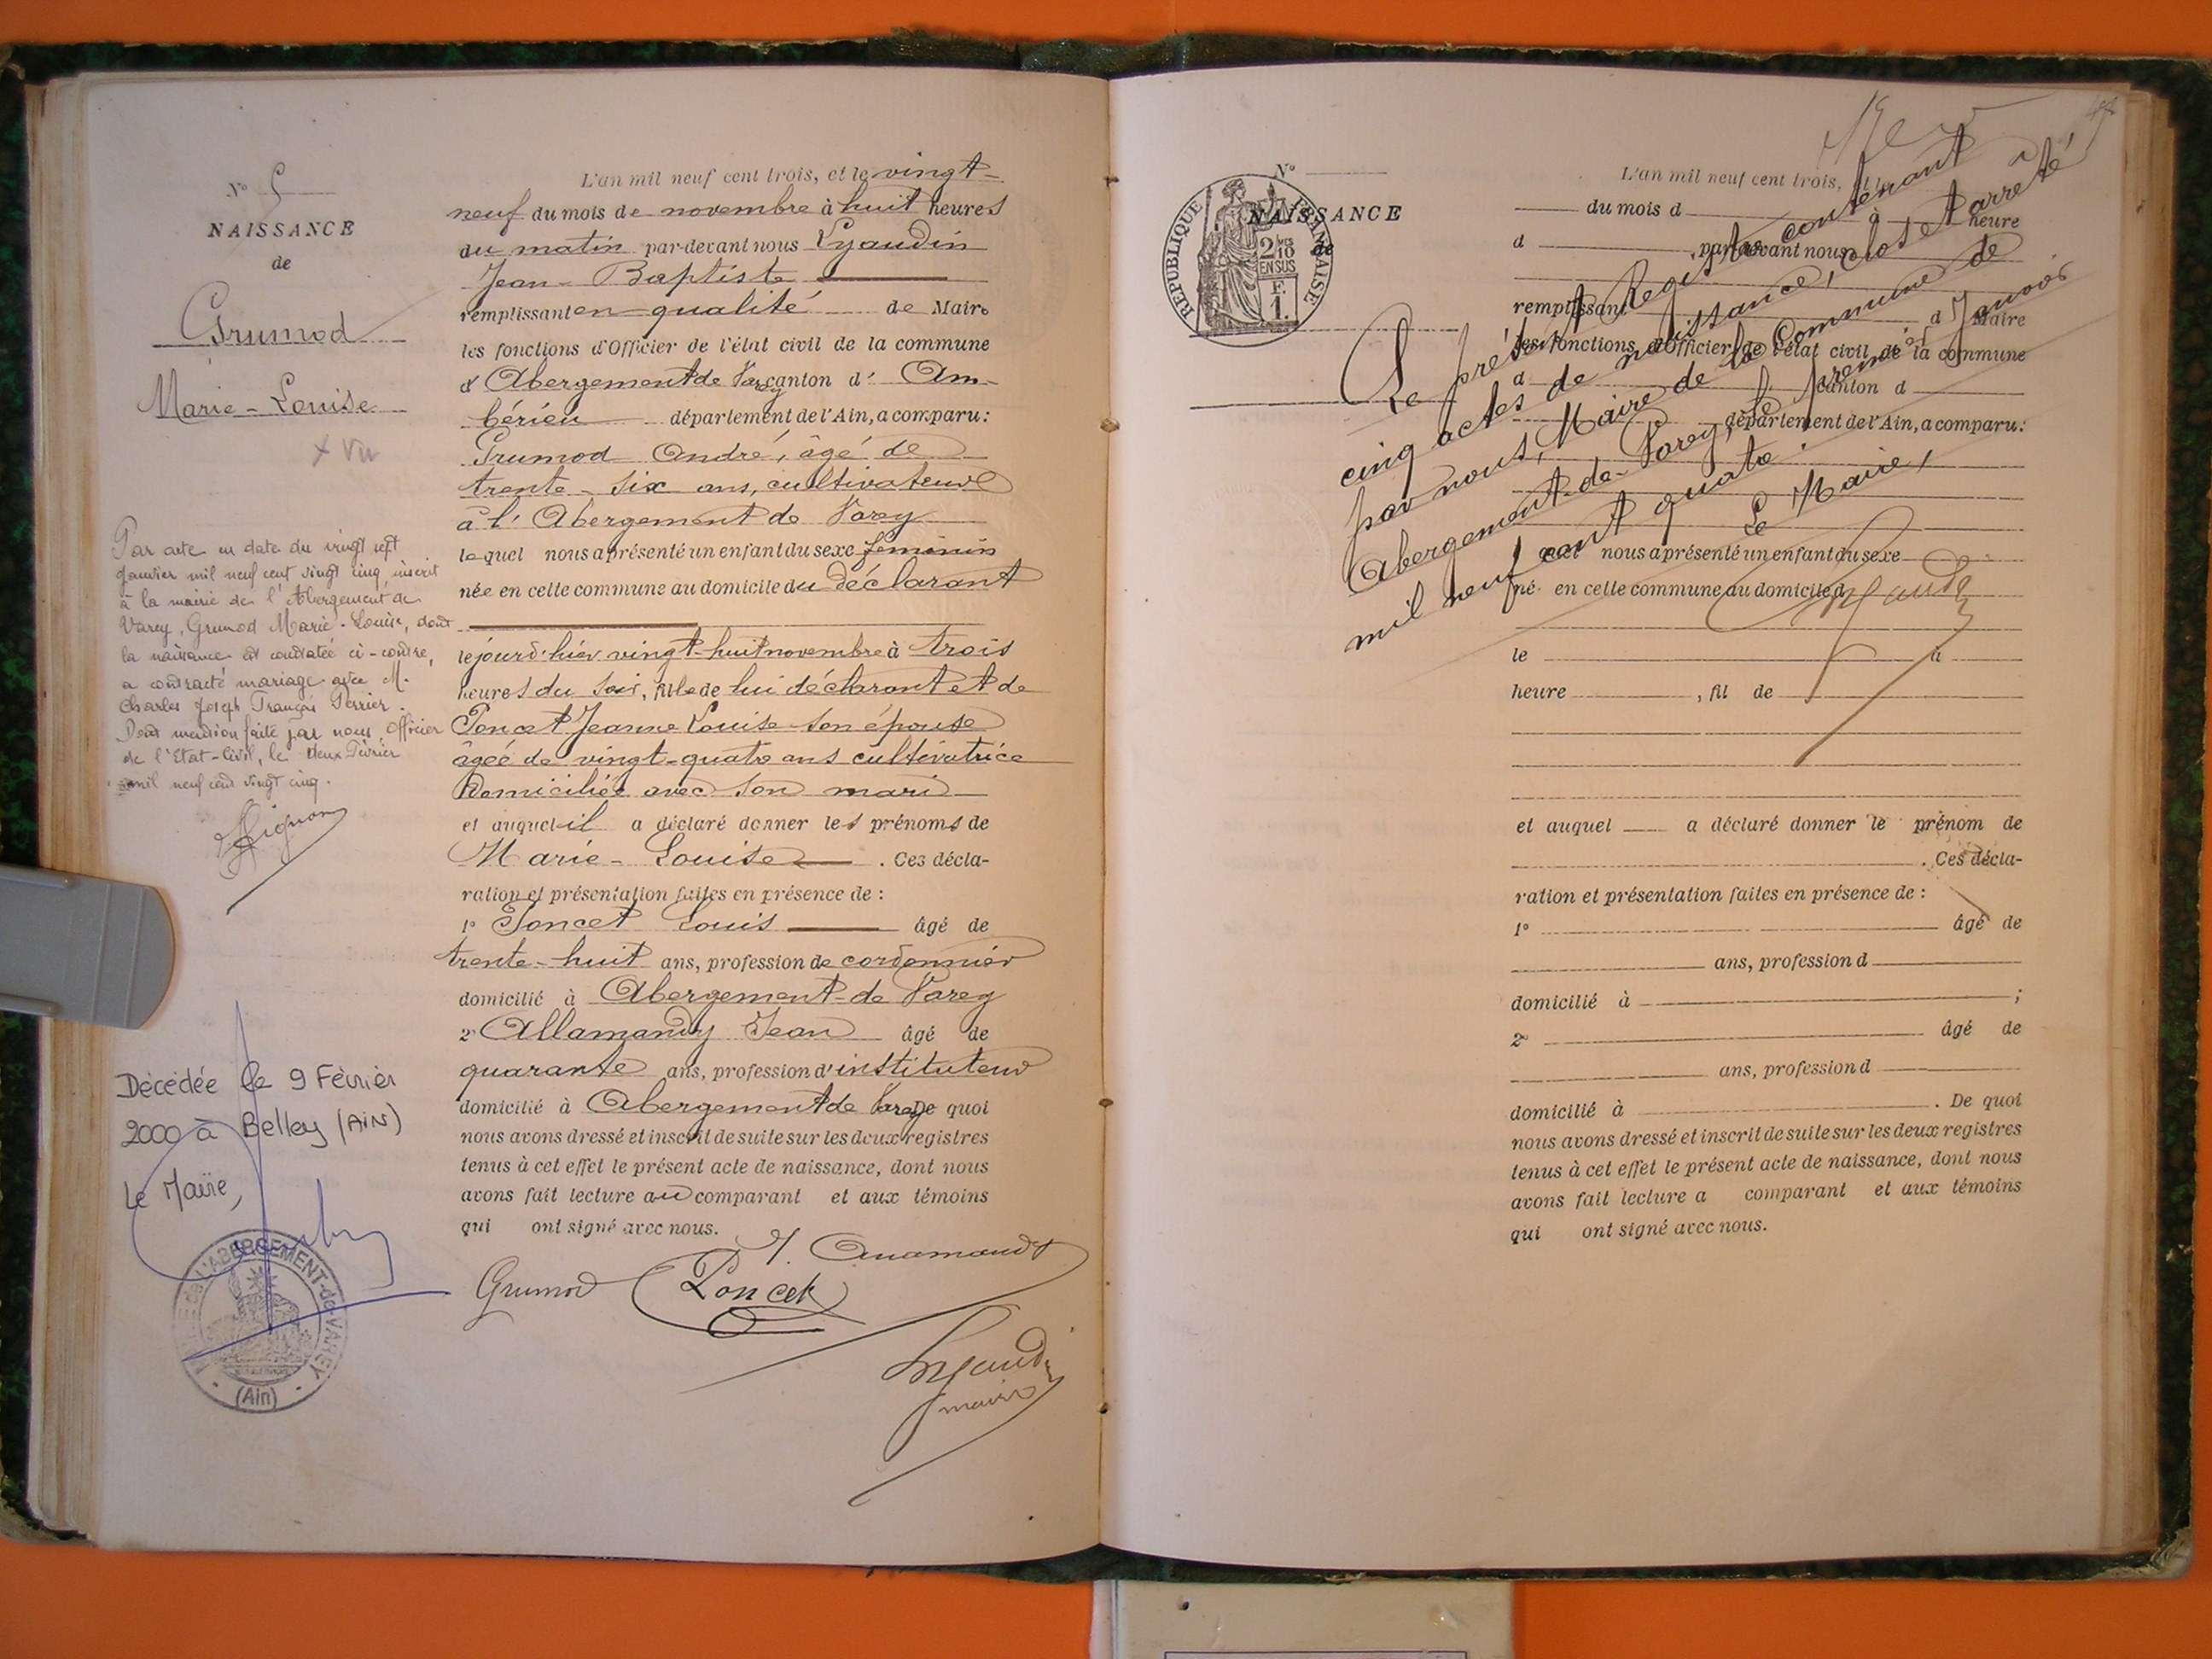 N° 5
NAISSANCE
de
Grumod
Marie-Louise
+ Vu
Par acte en date du vingt sept
Janvier mil neuf cent vingt cinq, inscrit
à la mairie de l'Abergement de
Varey, Grumod Marie-Louise, dont
la naissance est constatée ci-contre,
a contracté mariage avec M.
Charles Joseph François Perrier.
Dont mention faite par nous, Officier
de l'Etat-Civil, le deux Février
mil neuf cent vingt cinq.
Décédée le 9 Février
2000 à Belley (AIN)
Le Maire,
L'ABERGEMENT-de-VAREY
(Ain)
L'an mil neuf cent trois, et le vingt-
neuf du mois de novembre à huit heures
du matin par-devant nous Lyaudin
Jean-Baptiste
remplissant en qualité de Maire
les fonctions d'Officier de l'état civil de la commune
d'Abergement de Varey canton d'Am-
bérieu département de l'Ain, a comparu:
Grumod André, âgé de
trente-six ans, cultivateur
à l'Abergement de Varey
lequel nous a présenté un enfant du sexe féminin
née en cette commune au domicile du déclarant
le jourd'hier vingt-huit novembre à trois
heures du soir, fille de lui déclarant et de
Poncet Jeanne Louise son épouse
âgée de vingt-quatre ans cultivatrice
domiciliée avec son mari
et auquel il a déclaré donner les prénoms de
Marie-Louise. Ces décla-
ration et présentation faites en présence de :
1° Poncet Louis âgé de
trente-huit ans, profession de cordonnier
domicilié à Abergement-de Varey
2° Allamandy Jean âgé de
quarante ans, profession d'instituteur
domicilié à Abergement de Varey De quoi
nous avons dressé et inscrit de suite sur les deux registres
tenus à cet effet le présent acte de naissance, dont nous
avons fait lecture au comparant et aux témoins
qui ont signé avec nous.
Grumod Poncet
maire
N°
NAISSANCE
de
REPUBLIQUE FRANÇAISE
2/10
EN SUS
F.
1.
L'an mil neuf cent trois,
du mois d à heure
d par-devant nous
remplissant d Maire
les fonctions d'Officier de l'état civil de la commune
d canton d
département de l'Ain, a comparu:
quel nous a présenté un enfant du sexe
né en cette commune au domicile d
le à
heure , fil de
et auquel a déclaré donner le prénom de
. Ces décla-
ration et présentation faites en présence de :
1° âgé de
ans, profession d
domicilié à ;
2° âgé de
ans, profession d
domicilié à . De quoi
nous avons dressé et inscrit de suite sur les deux registres
tenus à cet effet le présent acte de naissance, dont nous
avons fait lecture a comparant et aux témoins
qui ont signé avec nous.
Le présent Registre contenant
cinq actes de naissance, clos et arrêté
par nous, Maire de la Commune de
Abergement-de-Varey, le premier Janvier
mil neuf cent quatre.
Le Maire,